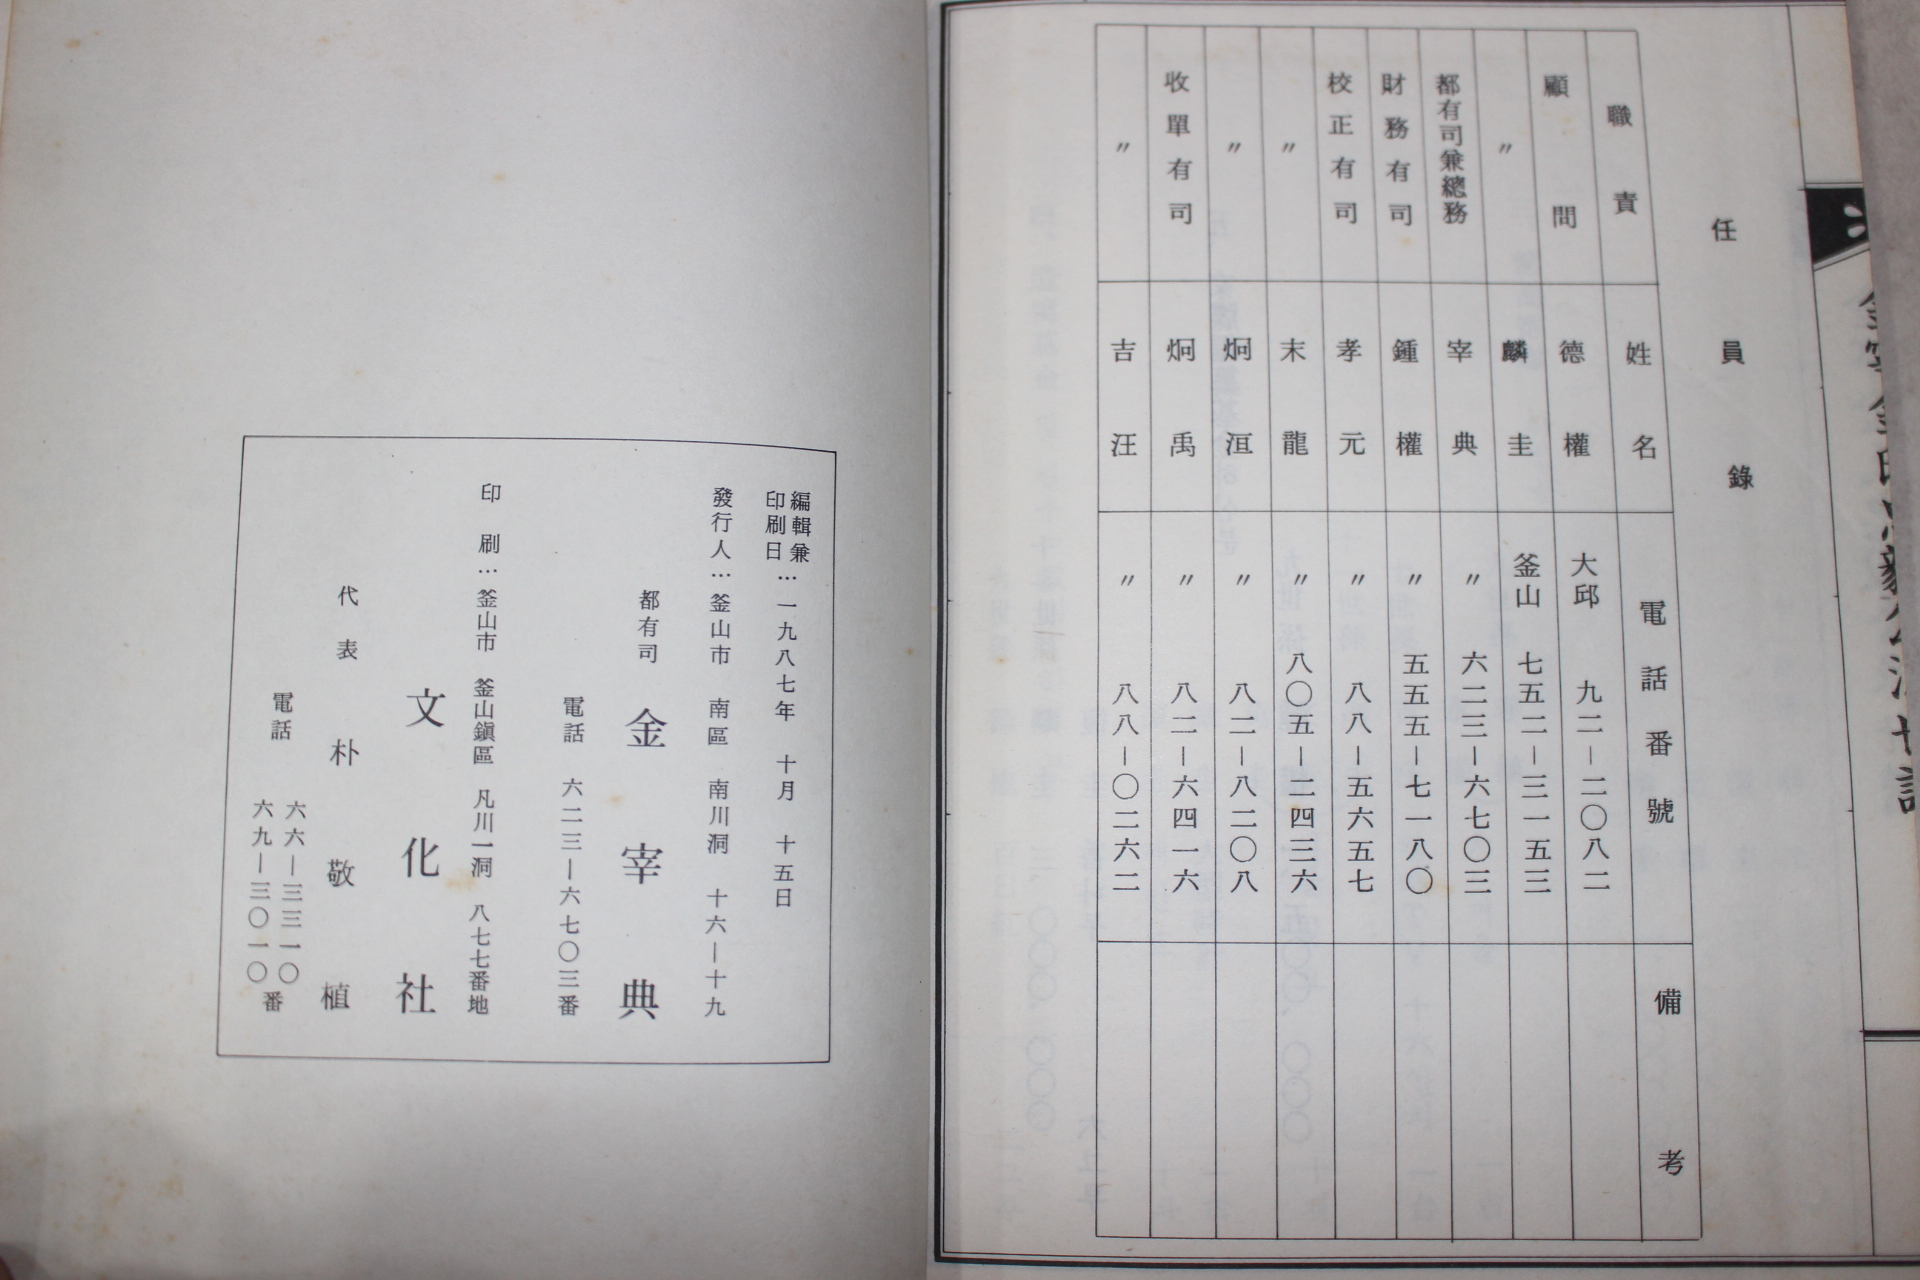 任員錄
職責 姓名 電話番號 備考
顧問 德權 大邱 九二―二〇八二
〃 麟圭 釜山 七五二―三一五三
都有司兼總務 宰典 〃 六二三―六七〇三
財務有司 鍾權 〃 五五五―七一八〇
校正有司 孝元 〃 八八―五六五七
〃 末龍 〃 八〇五―二四三六
〃 炯洹 〃 八二―八二〇八
收單有司 炯禹 〃 八二―六四一六
〃 吉汪 〃 八八―〇二六二
編輯兼
印刷日…一九八七年 十月 十五日
發行人…釜山市 南區 南川洞 十六―十九
都有司 金宰典
電話 六二三―六七〇三番
印刷…釜山市 釜山鎭區 凡川一洞 八七七番地
文化社
代表 朴敬植
電話 六六―三三一〇
六九―三〇一〇番